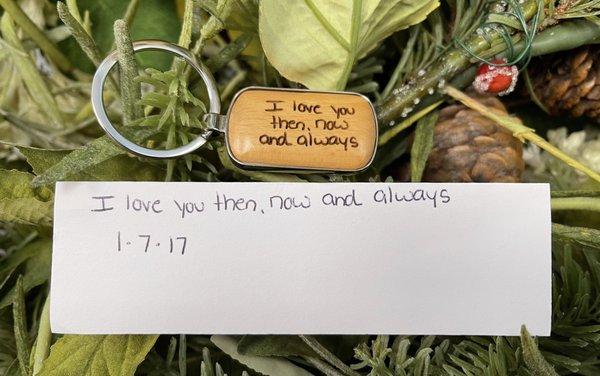 I love you
then, now
and always
I love you then, now and always
1.7.17